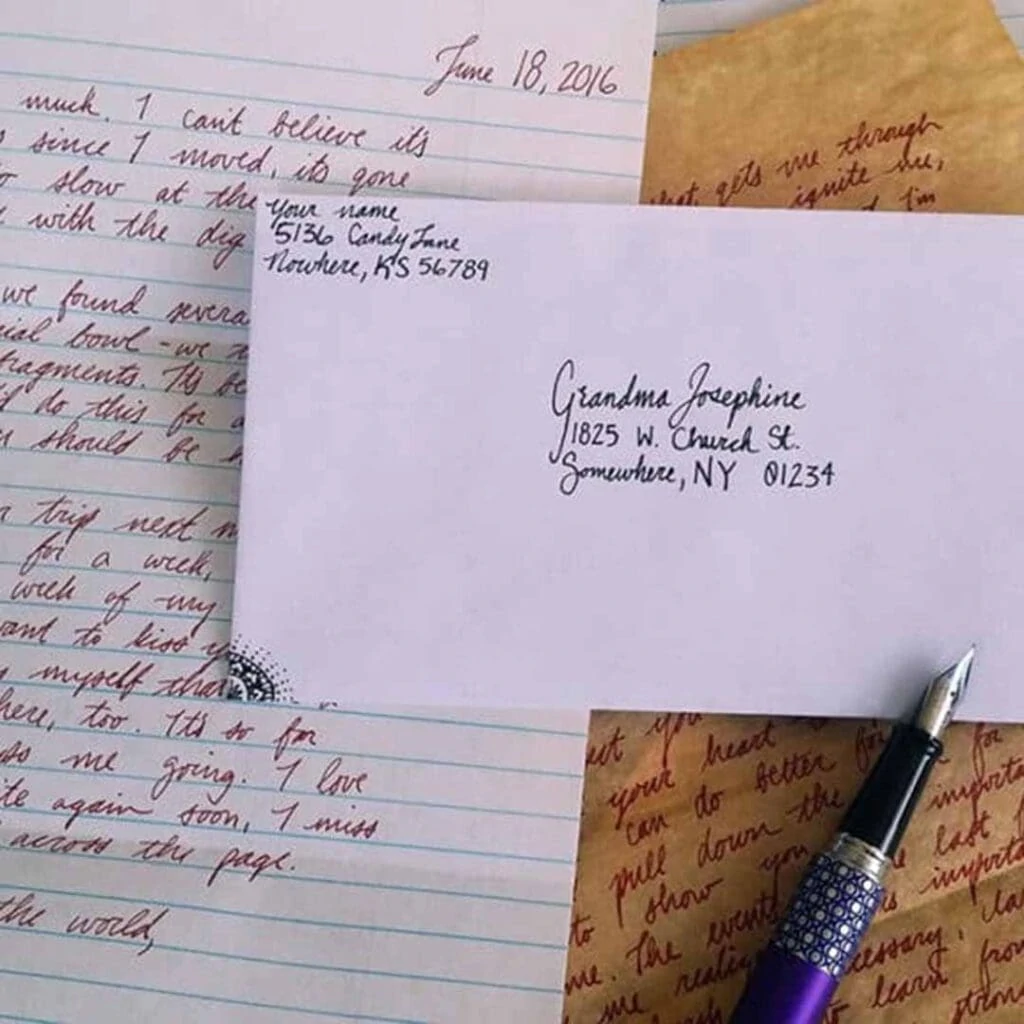 June 18, 2016
much. I can't believe it's
since I moved, it's gone
slow at the
with the dig
we found severa
ial bowl - we
fragments. It's be
do this for a
should be
trip next
for a week,
week of my
want to kiss
myself tha
here, too. It's so far
me going. I love
again soon, I miss
across the page.
the world,
Your name
5136 Candy Lane
Nowhere, KS 56789
Grandma Josephine
1825 W. Church St.
Somewhere, NY 01234
gets me through
ignite me,
I'm
your heart for
can do better important
pull down the last
to show you important
me. The events is
me realize cessary.
learn from
strong